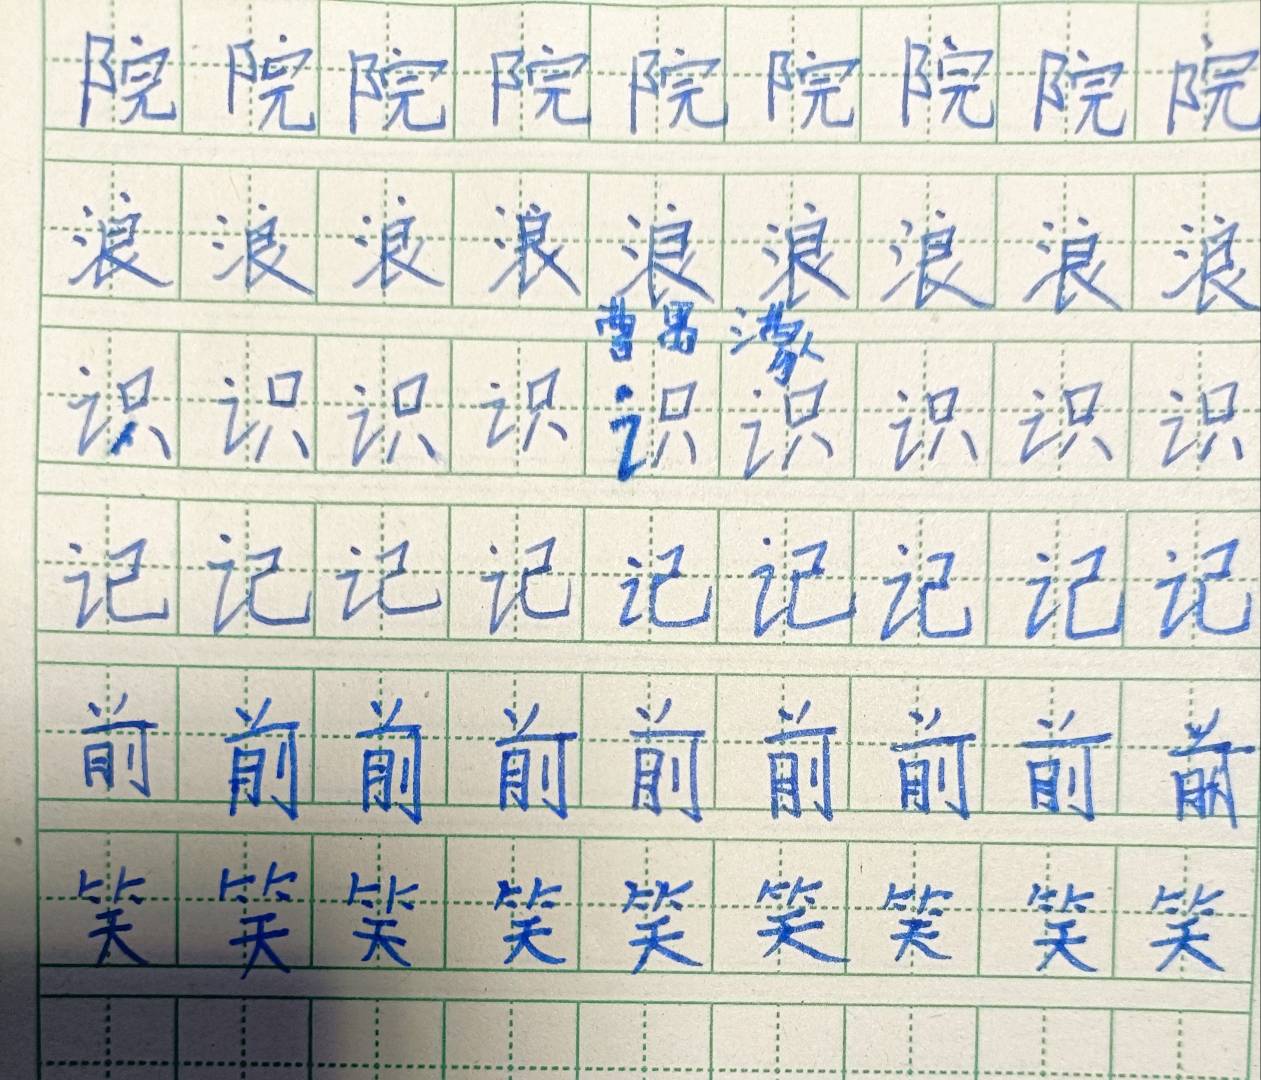 院院院院院院院院院
浪浪浪浪浪浪浪浪浪
曹禺 濛
识识识识识识识识识
记记记记记记记记记
前前前前前前前前前
笑笑笑笑笑笑笑笑笑